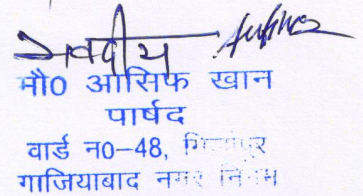 भवदीय
मौ0 आसिफ खान
पार्षद
वार्ड न0–48, मिर्जापुर
गाजियाबाद नगर निगम